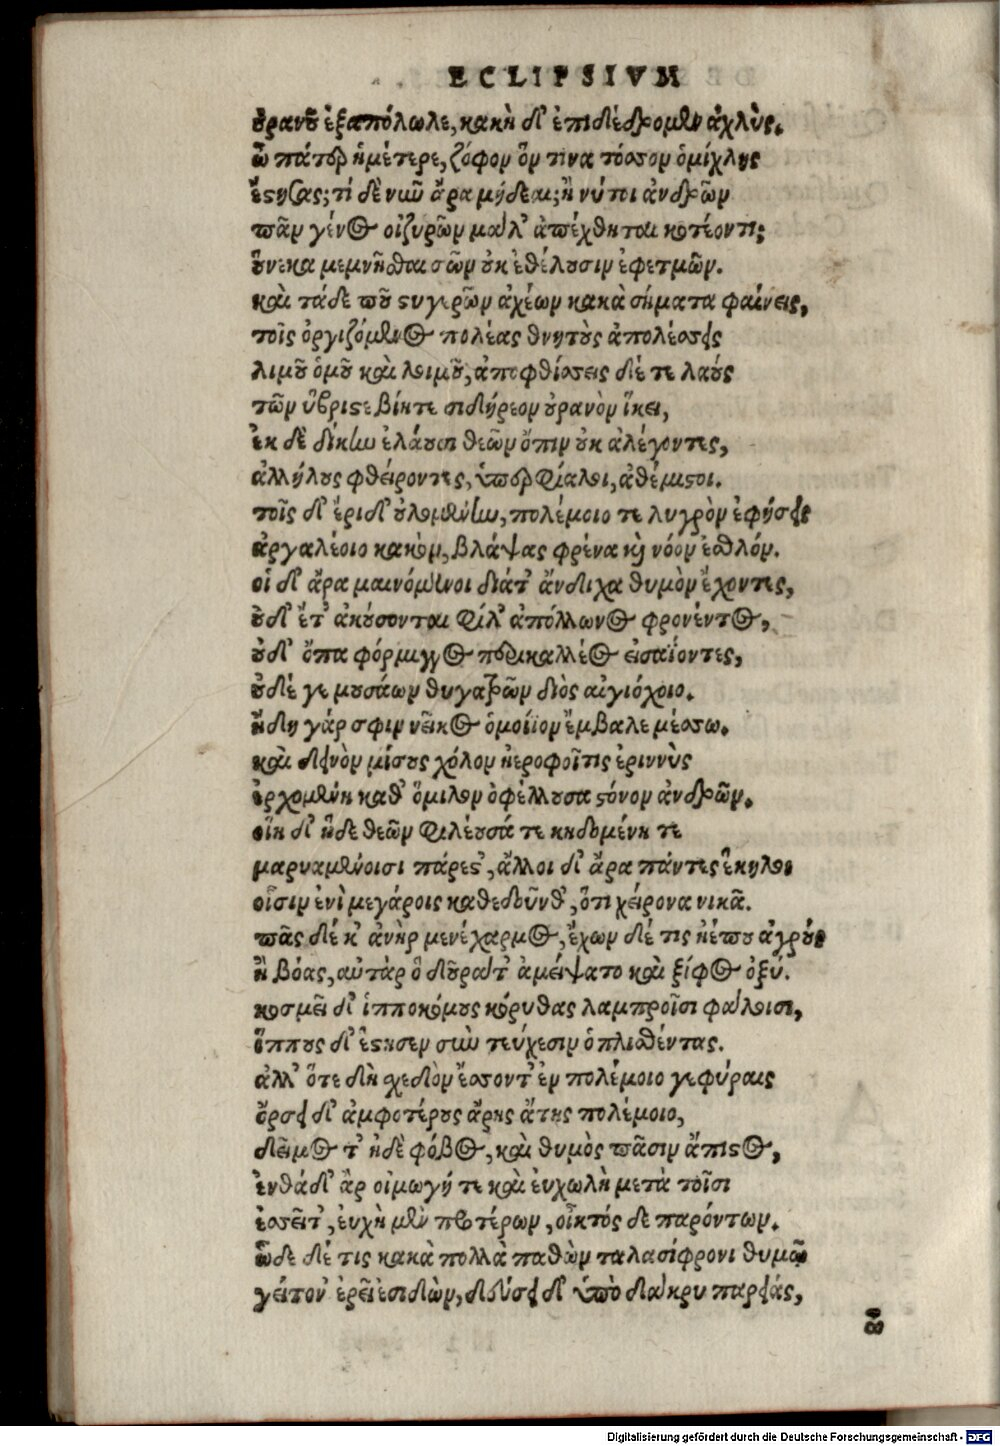 ECLIPSIVM
οὐρανοῦ ἐξαπόλωλε, κακὴ δ' ἐπιδέδρομεν ἀχλύς.
ὦ πάτερ ἡμέτερε, ζόφον ὅν τινα τόσσον ὁμίχλης
ἔστησας; τί δὲ νῶϊν ἄρα μήδεαι; ἤ νύ τοι ἀνδρῶν
πᾶν γένος οἰζυρῶν μάλ' ἀπέχθηται κοτέοντι;
οὕνεκα μεμνῆσθαι σῶν οὐκ ἐθέλουσιν ἐφετμῶν.
καὶ τάδε που στυγερῶν ἀχέων κακὰ σήματα φαίνεις,
τοῖς ὀργιζόμενος πολέας θνητοὺς ἀπολέσσεις
λιμοῦ ὁμοῦ καὶ λοιμοῦ, ἀποφθίσσεις δέ τε λαούς
τῶν ὕβρις τε βίη τε σιδήρεον οὐρανὸν ἵκει,
ἐκ δὲ δίκην ἐλάουσι θεῶν ὄπιν οὐκ ἀλέγοντες,
ἀλλήλους φθείροντες, ὑπερφίαλοι, ἀθέμιστοι.
τοῖς δ' ἔριδ' οὐλομένην, πολέμοιο τε λυγρὸν ἐφήσεις
ἀργαλέοιο κακὸν, βλάψας φρένα καὶ νόον ἐσθλόν.
οἱ δ' ἄρα μαινόμενοι διάτ' ἄνδιχα θυμὸν ἔχοντες,
οὐδ' ἔτ' ἀκούσονται φίλ' ἀπόλλωνος φρονέντος,
οὐδ' ὄπα φόρμιγγος περικαλλέος εἰσαΐοντες,
οὐδέ γε μουσάων θυγατρῶν διὸς αἰγιόχοιο.
ἤδη γάρ σφιν νεῖκος ὁμοίϊον ἔμβαλε μέσσω.
καὶ δεινὸν μίσους χόλον ἠεροφοῖτις ἐριννὺς
ἐρχομένη καθ' ὅμιλον ὀφέλλουσα στόνον ἀνδρῶν.
οἵη δ' ἥδε θεῶν φιλέουσά τε κηδομένη τε
μαρναμένοισι πάρεστ', ἄλλοι δ' ἄρα πάντες ἕκηλοι
οἷσιν ἐνὶ μεγάροις καθεδοῦνθ', ὅτι χείρονα νικᾶ.
πᾶς δέ κ' ἀνὴρ μενέχαρμος, ἔχων δέ τις ἠέπου ἀγρὸς
ἢ βόας, αὐτὰρ ὁ δοῦρατ' ἀμείψατο καὶ ξίφος ὀξύ.
κοσμεῖ δ' ἱπποκόμους κόρυθας λαμπροῖσι φάλοισι,
ἵππους δ' ἔστησεν σὺν τεύχεσιν ὁπλισθέντας.
ἀλλ' ὅτε δὴ σχεδὸν ἔσσοντ' ἐν πολέμοιο γεφύραις
ὄρσει δ' ἀμφοτέρους ἄρης ἄτης πολέμοιο,
δεῖμος τ' ἠδὲ φόβος, καὶ θυμὸς πᾶσιν ἄπιστος,
ἐνθάδ' ἂρ οἰμωγή τε καὶ ἐυχωλὴ μετὰ τοῖσι
ἐσσεῖτ', ἐυχὴ μὲν προτέρων, οἶκτός δε παρόντων.
ὧδε δέ τις κακὰ πολλὰ παθὼν ταλασίφρονι θυμῷ
γείτον' ἐρεῖ ἐσιδὼν, δεύσει δ' ὑπὸ δάκρυ παρειάς,
Digitalisierung gefördert durch die Deutsche Forschungsgemeinschaft - DFG